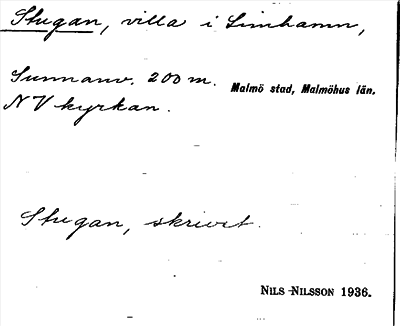 Stugan, villa i Limhamn,
Sunnanv. 200 m. Malmö stad, Malmöhus län.
NV kyrkan.
Stugan, skrivet.
NILS NILSSON 1936.